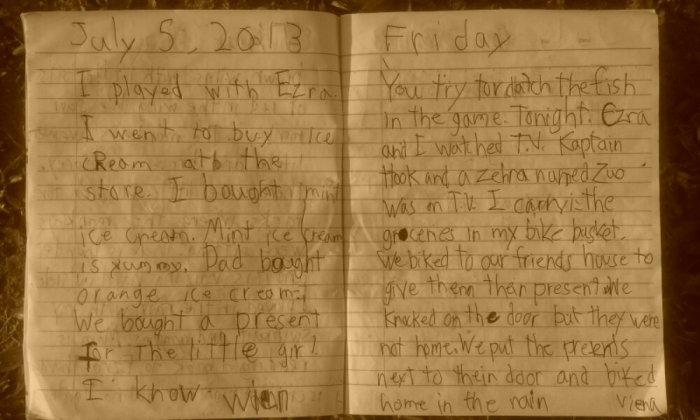 July 5, 2013
I played with Ezra.
I went to buy Ice
cream at the
store. I bought mint
ice cream. Mint ice cream
is yummy. Dad bought
orange ice cream.
We bought a present
for the little girl
I know
Friday
You try to catch the fish
in the game. Tonight. Ezra
and I watched T.V. Kaptain
Hook and a zebra named Zuo
was on T.V. I carry the
groceries in my bike basket.
We biked to our friends house to
give them thar present. We
knocked on the door but they were
not home. We put the presents
next to their door and biked
home in the rain